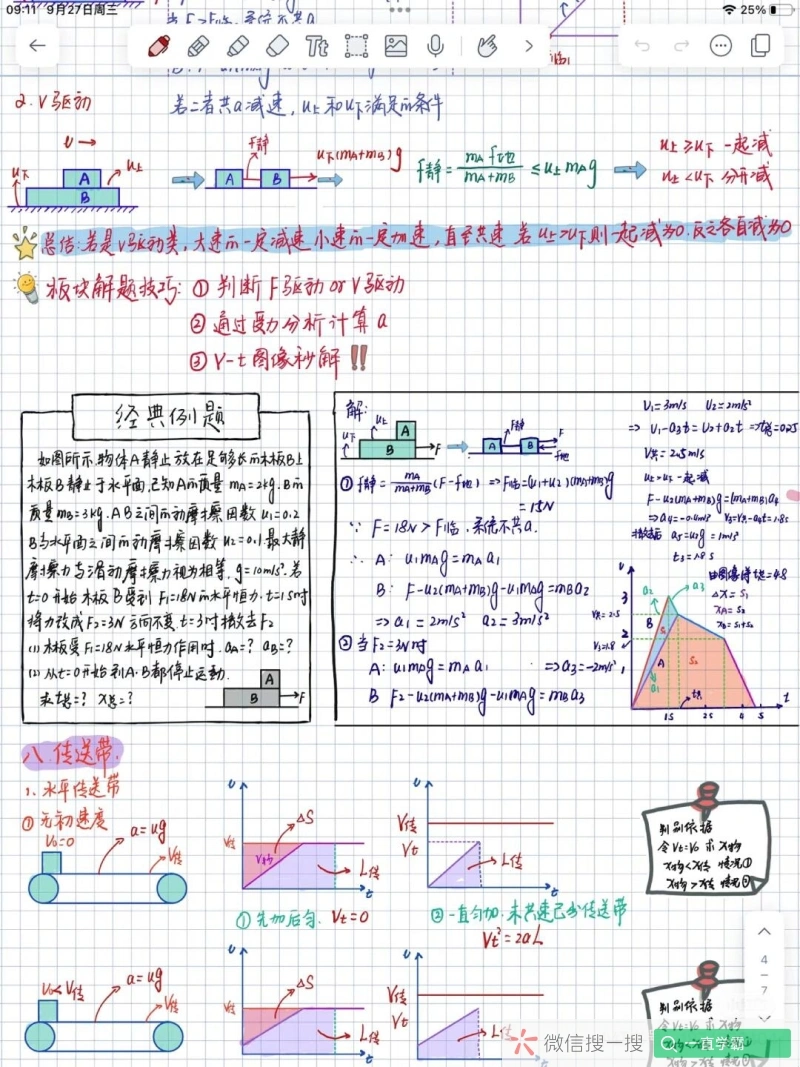 09:11 9月27日周三
25%
Tt
2. V驱动
若二者共a减速，u上和u下满足的条件
V
f静
u下(mA+mB)g
u下
A
u上
B
A
B
f静 = mA f地 / mA+mB ≤ u上mAg
u上≥u下 一起减
u上<u下 分开减
总结：若是V驱动类，大速的一定减速，小速的一定加速，直至共速 若u上>u下则一起减为0.反之各自减为0
板块解题技巧：① 判断F驱动orV驱动
② 通过受力分析计算a
③ V-t图像秒解 !!
经典例题
如图所示，物体A静止放在足够长的木板B上
木板B静止于水平面，已知A的质量mA=2kg，B的
质量mB=3kg，AB之间的动摩擦因数u1=0.2
B与水平面之间的动摩擦因数u2=0.1，最大静
摩擦力与滑动摩擦力视为相等，g=10m/s².若
t=0开始木板B受到F1=18N的水平恒力，t=1s时
将力改成F2=3N方向不变，t=3s时撤去F2
(1) 木板受F1=18N水平恒力作用时，aA=? aB=?
(2) 从t=0开始到A、B都停止运动，
求t总=? x总=?
A
B
F
解：
u上
u下
A
B
F
f静
A
B
F
f地
① f静 = mA / mA+mB (F-f地) ⇒ F临=(u1+u2)(mA+mB)g
=15N
∵ F=18N>F临，系统不共a.
∴ A: u1mAg=mAa1
B: F-u2(mA+mB)g-u1mAg=mBa2
⇒ a1=2m/s² a2=3m/s²
② 当F2=3N时
A: u1mAg=mAa1 ⇒ a3=-2m/s²
B F2-u2(mA+mB)g-u1mAg=mBa3
V1=3m/s V2=2m/s²
⇒ V1-a3t=V2+a2t ⇒ t共=0.25
V共=2.5m/s
u上>u下 一起减
F-u2(mA+mB)g=(mA+mB)a4
⇒ a4=-0.4m/s² V3=V共-a4t=1.8s
撤去后 a5=u2g=1m/s²
t3=1.8s
由图像得t总=4.8
Δx=S1
xA=S2
xB=S1+S2
V
a2
a3
3
V共=2.5
B
S1
2
V3=1.8
A
S2
1
a1
t共
1s
2s
4
5
t
八.传送带.
1. 水平传送带
① 无初速度
V0=0
a=ug
V传
V
V传
ΔS
V物
L传
t
① 先加后匀. Vt=0
V
V传
Vt
L传
t
② 一直匀加，未共速已出传送带
Vt²=2aL
判别依据
令Vt=V0 求X物
X物<X传 情况①
X物>X传 情况②
4
7
V0<V传
a=ug
V传
V
V传
ΔS
L传
t
V
V传
Vt
L传
判别依据
微信搜一搜
一直学霸